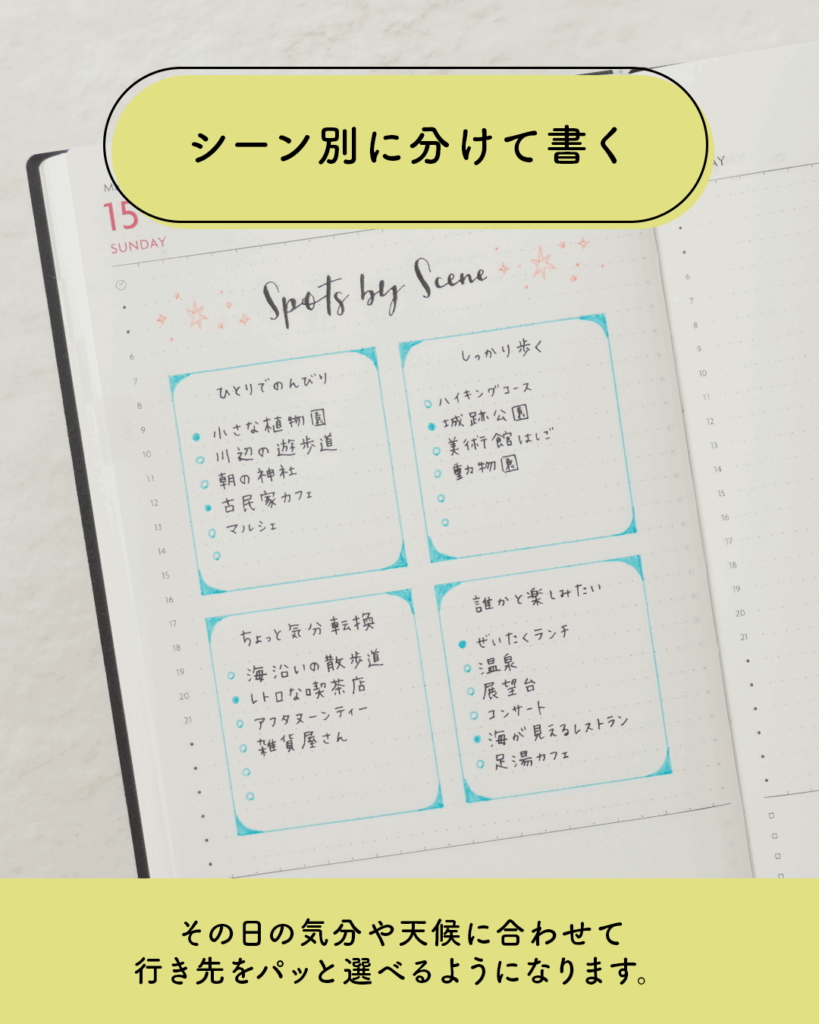 シーン別に分けて書く
15
SUNDAY
Spots by Scene
ひとりでのんびり
小さな植物園
川辺の遊歩道
朝の神社
古民家カフェ
マルシェ
しっかり歩く
ハイキングコース
城跡公園
美術館はしご
動物園
ちょっと気分転換
海沿いの散歩道
レトロな喫茶店
アフタヌーンティー
雑貨屋さん
誰かと楽しみたい
ぜいたくランチ
温泉
展望台
コンサート
海が見えるレストラン
足湯カフェ
6
7
8
9
10
11
12
13
14
15
16
17
18
19
20
21
6
7
8
9
10
11
12
13
14
15
16
17
18
19
20
21
その日の気分や天候に合わせて
行き先をパッと選べるようになります。